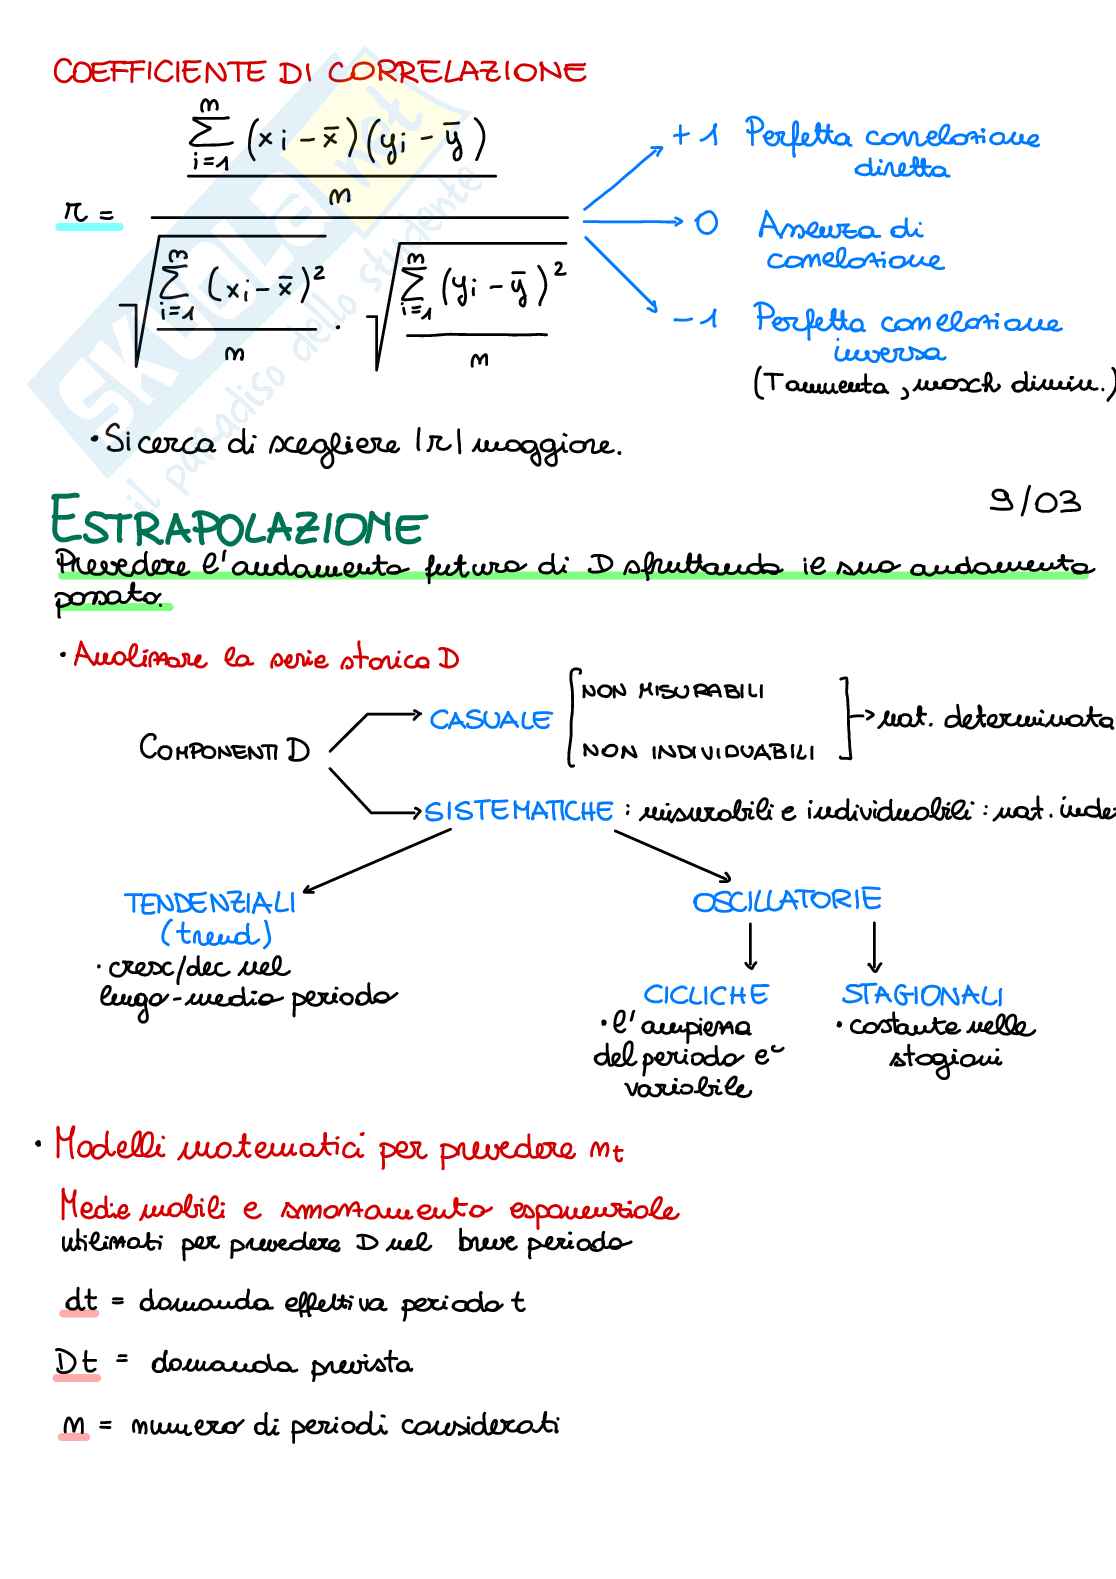 COEFFICIENTE DI CORRELAZIONE
r = \frac{\frac{\sum_{i=1}^{m} (xi - \bar{x})(yi - \bar{y})}{m}}{\sqrt{\frac{\sum_{i=1}^{m} (xi - \bar{x})^2}{m}} \cdot \sqrt{\frac{\sum_{i=1}^{m} (yi - \bar{y})^2}{m}}}
+1 Perfetta correlazione
diretta
0 Assenza di
correlazione
-1 Perfetta correlazione
inversa
(T aumenta, mosch dimin.)
• Si cerca di scegliere |r| maggiore.
SKUOLA.net
il paradiso dello studente
ESTRAPOLAZIONE
9/03
Prevedere l'andamento futuro di D sfruttando il suo andamento
passato.
• Analizzare la serie storica D
COMPONENTI D
CASUALE
NON MISURABILI
NON INDIVIDUABILI
nat. determinata
SISTEMATICHE : misurabili e individuabili : nat. inde
TENDENZIALI
(trend)
• cresc/dec nel
lungo-medio periodo
OSCILLATORIE
CICLICHE
• l'ampiezza
del periodo è
variabile
STAGIONALI
• costante nelle
stagioni
• Modelli matematici per prevedere mt
Medie mobili e smorzamento esponenziale
utilizzati per prevedere D nel breve periodo
dt = domanda effettiva periodo t
Dt = domanda prevista
m = numero di periodi considerati